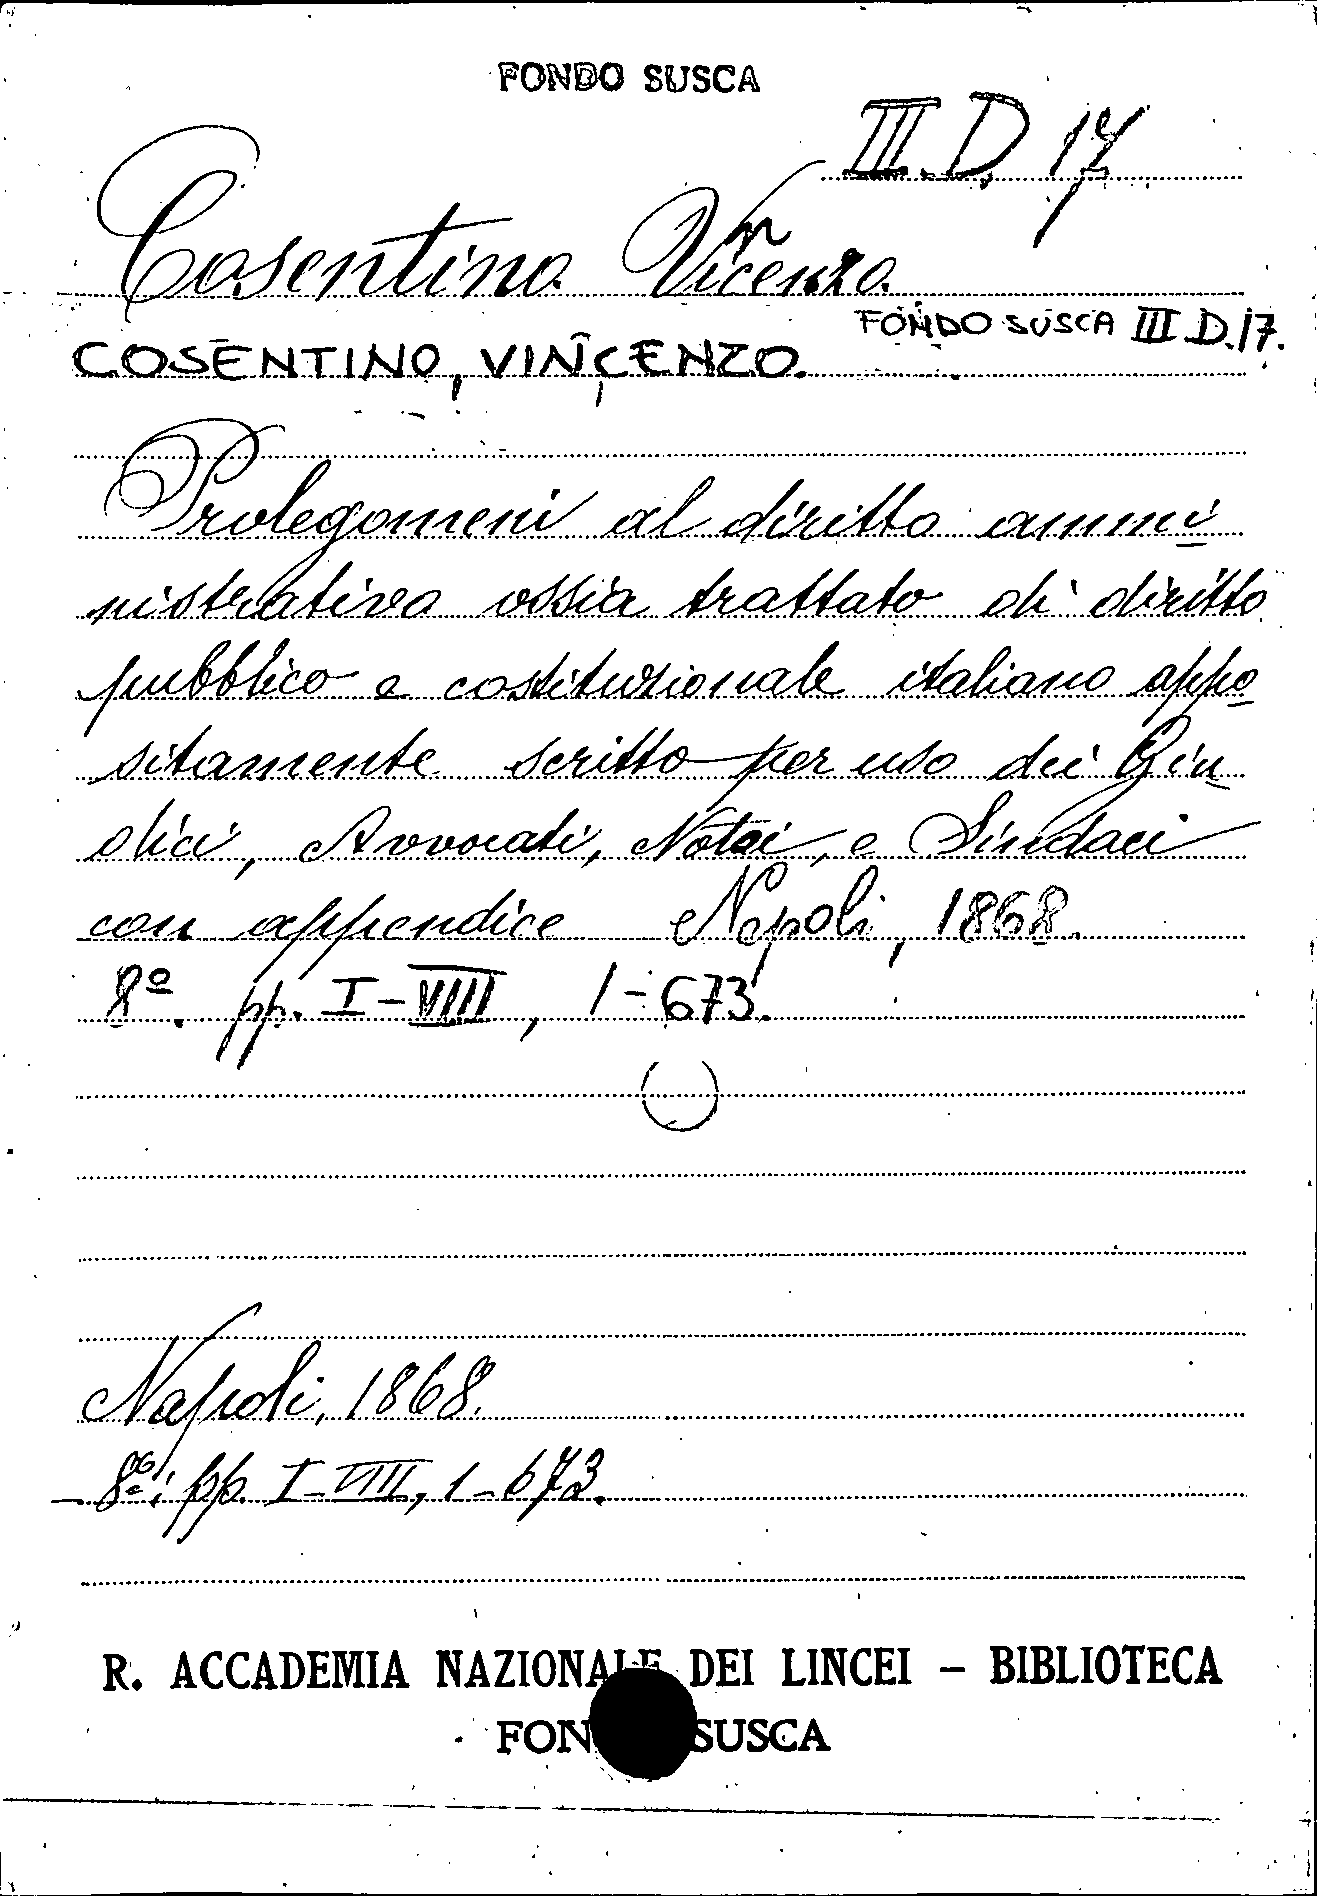 FONDO SUSCA
III. D. 17
Cosentino Vincenzo
FONDO SUSCA III D.17.
COSENTINO, VINCENZO.
Prolegomeni al diritto ammi
nistrativo ossia trattato di diritto
pubblico e costituzionale italiano appo
sitamente scritto per uso dei Giu
dici, Avvocati, Notai, e Sindaci
con appendice Napoli, 1868.
8º. pp. I-VIII, 1-673.
Napoli, 1868.
8º; pp. I-VIII, 1-673.
R. ACCADEMIA NAZIONALE DEI LINCEI – BIBLIOTECA
FON SUSCA